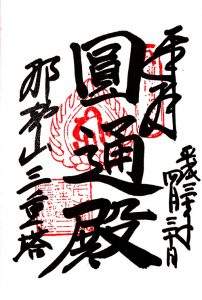 奉拝
平成
四月三十日
圓通殿
那智山三重塔